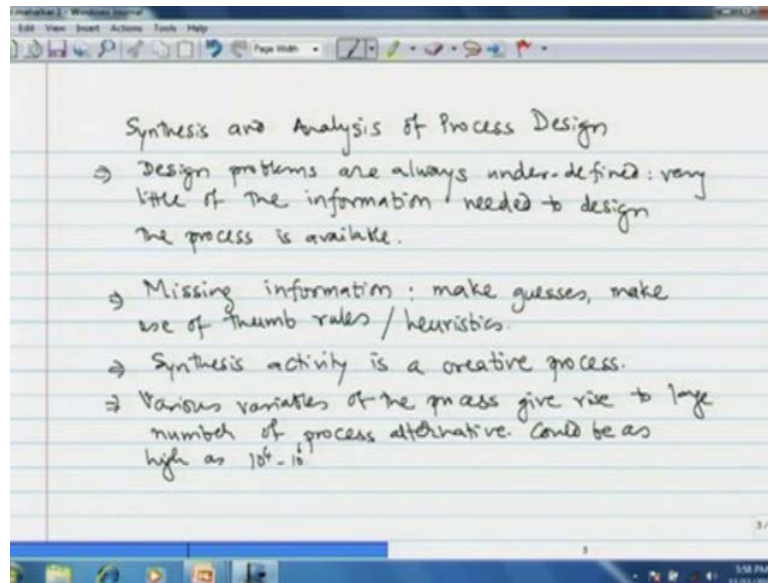 Windows Journal
Edit View Insert Actions Tools Help
Page Width
Synthesis and Analysis of Process Design
⇒ Design problems are always under-defined: very
little of the information needed to design
the process is available.
⇒ Missing information: make guesses, make
use of thumb rules / heuristics.
⇒ Synthesis activity is a creative process.
⇒ Various variables of the process give rise to large
number of process alternative. Could be as
high as
3/
3
3:58 PM